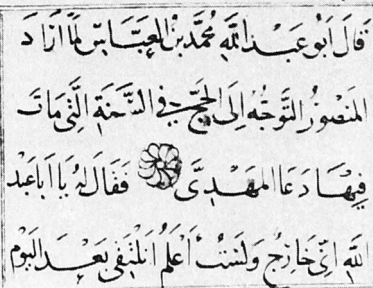 قَالَ اَبُو عَبْدِ اللّٰهِ مُحَمَّدُ بْنُ العَبَّاسِ لَمَّا اَرَادَ
المَنْصُورُ التَّوَجُّهَ اِلَى الحَجِّ فِي السَّنَةِ الَّتِي مَاتَ
فِيهَا دَعَا المَهْدِيَّ فَقَالَ لَهُ يَا اَبَا عَبْدِ
اللّٰهِ اِنِّي خَارِجٌ وَلَسْتُ اَعْلَمُ اَنَلْتَقِي بَعْدَ اليَوْمِ